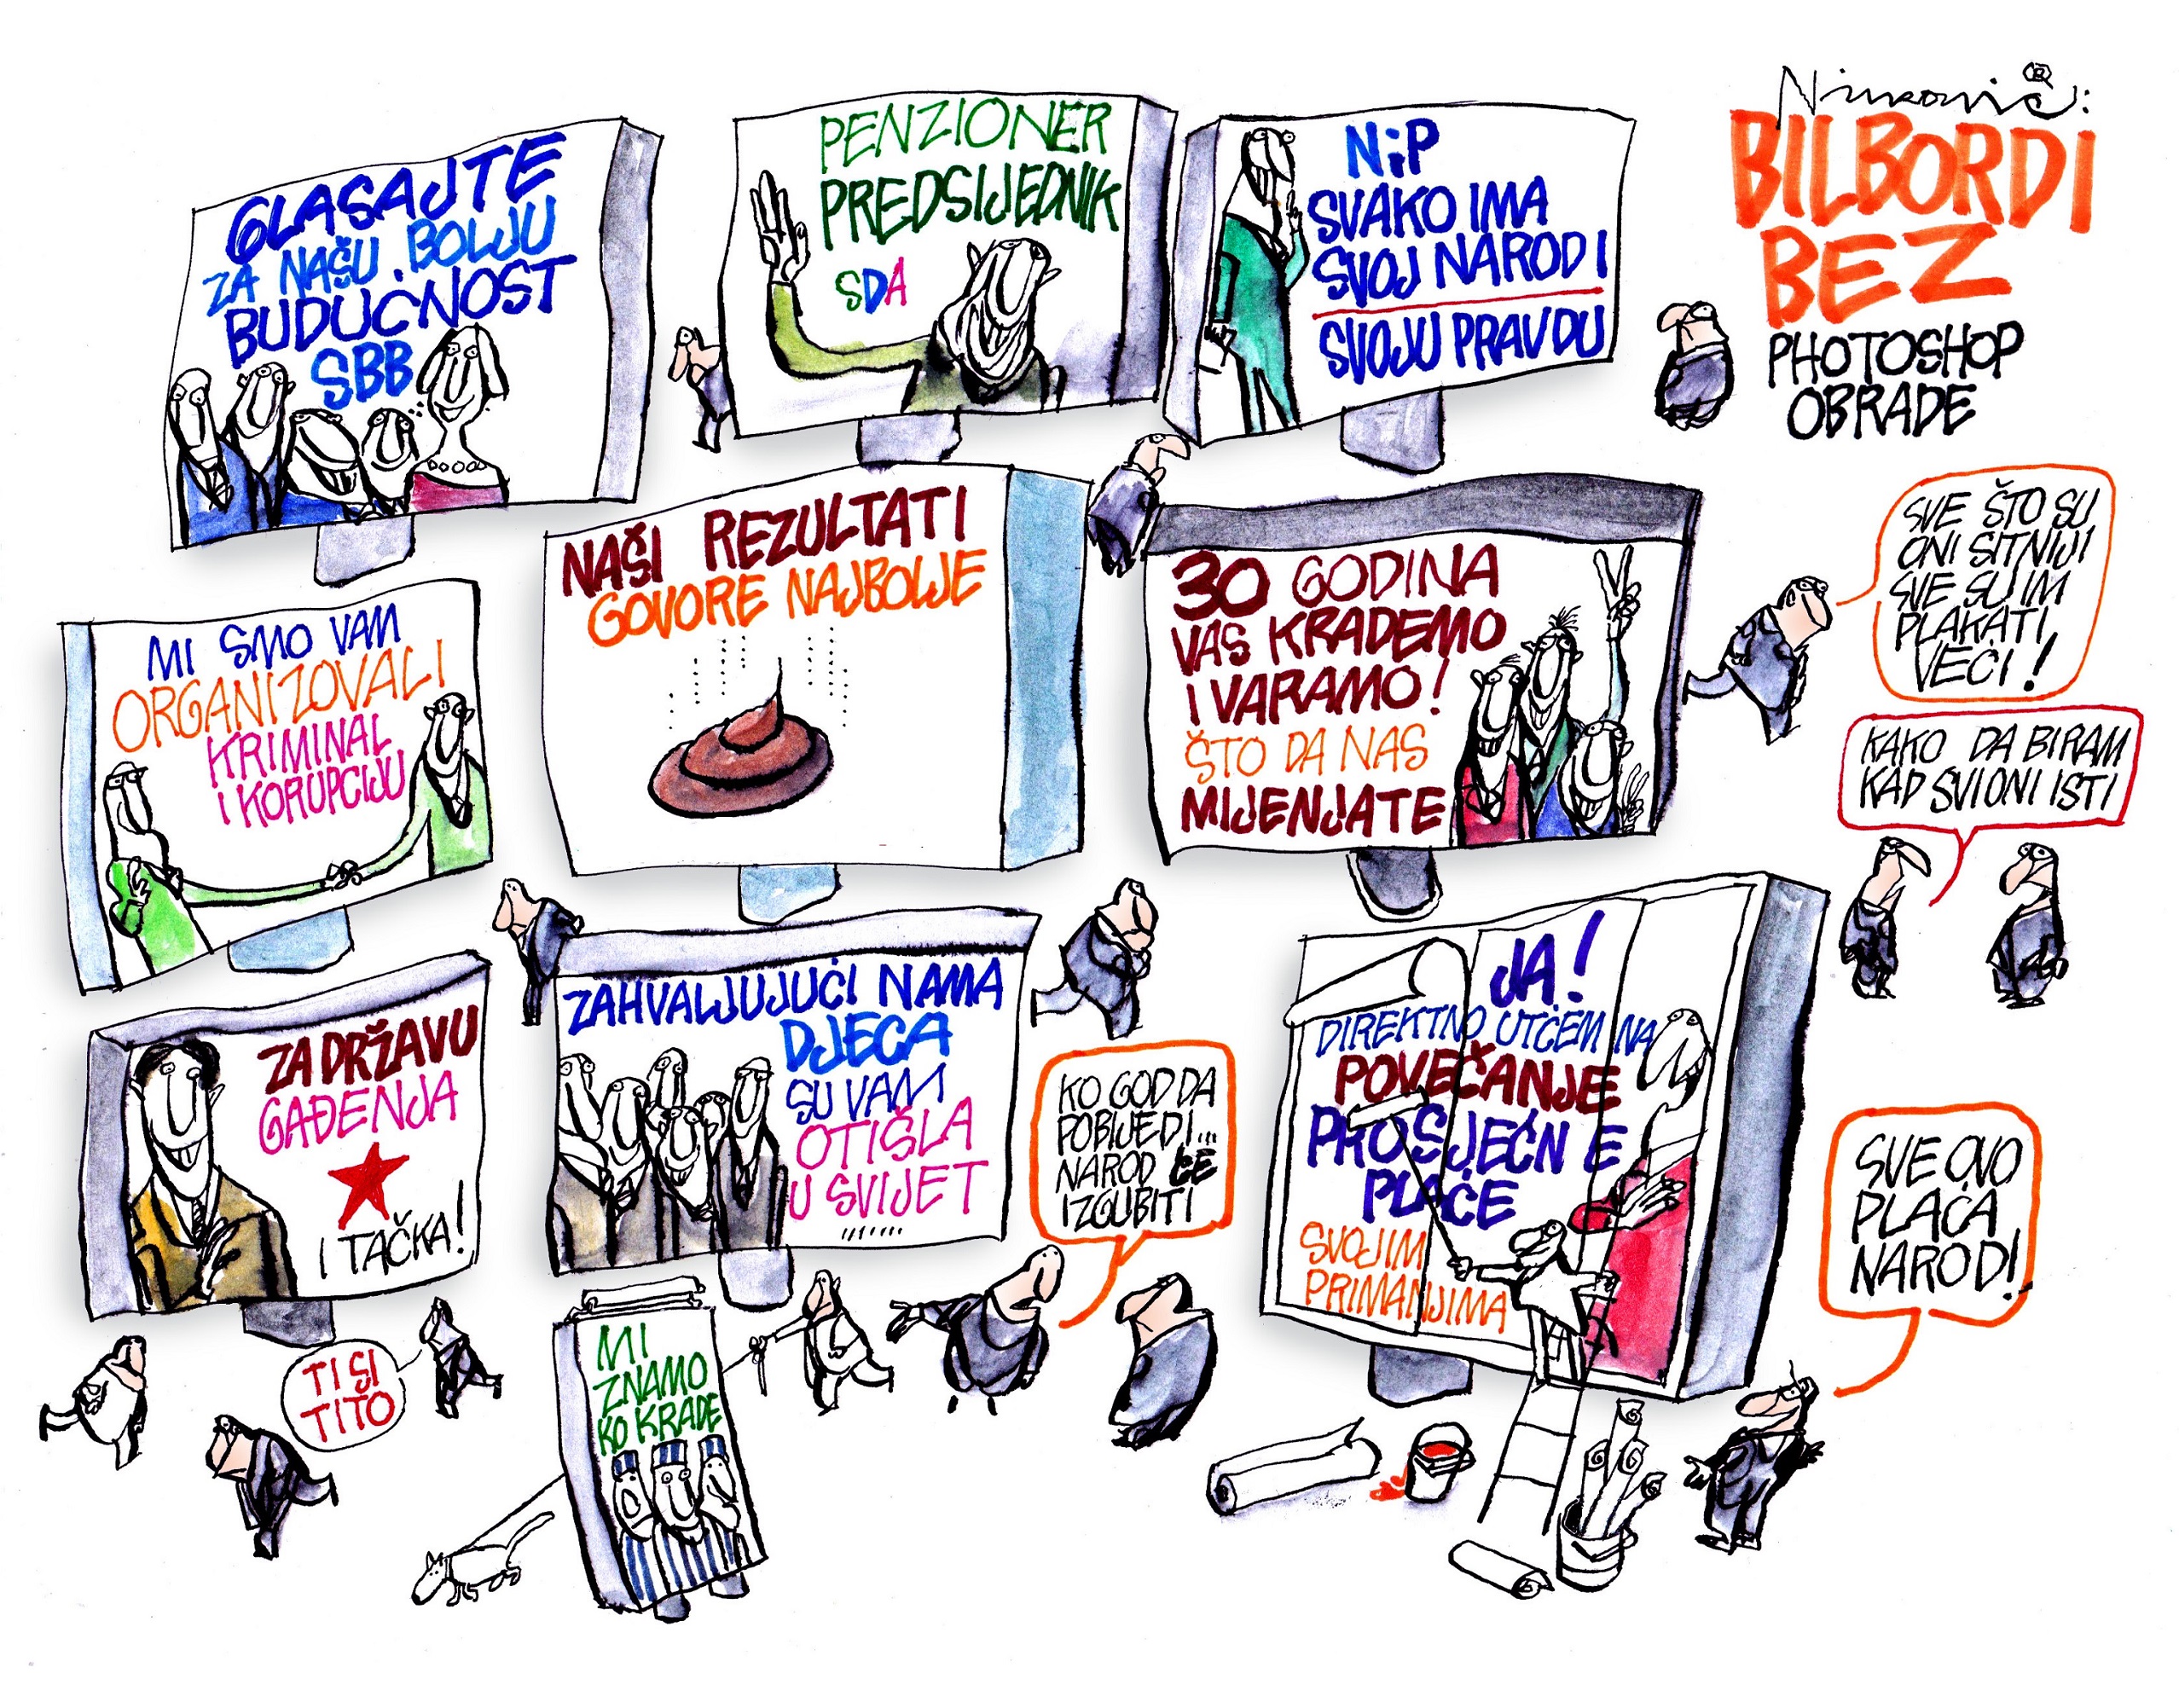 Ninković:
BILBORDI
BEZ
PHOTOSHOP
OBRADE
GLASAJTE
ZA NAŠU BOLJU
BUDUĆNOST
SBB
PENZIONER
PREDSIJEDNIK
SDA
NiP
SVAKO IMA
SVOJ NAROD I
SVOJU PRAVDU
MI SMO VAM
ORGANIZOVALI
KRIMINAL
I KORUPCIJU
NAŠI REZULTATI
GOVORE NAJBOLJE
30 GODINA
VAS KRADEMO
I VARAMO!
ŠTO DA NAS
MIJENJATE
SVE ŠTO SU
ONI SITNIJI
SVE SU IM
PLAKATI
VEĆI!
KAKO DA BIRAM
KAD SVI ONI ISTI
ZA DRŽAVU
GAĐENJA
I TAČKA!
TI SI
TITO
ZAHVALJUJUĆI NAMA
DJECA
SU VAM
OTIŠLA
U SVIJET
KO GOD DA
POBIJEDI...
NAROD ĆE
IZGUBITI
MI
ZNAMO
KO KRADE
JA!
DIREKTNO UTČEM NA
POVEČANJE
PROSJEĆNE
PLAĆE
SVOJIM
PRIMANJIMA
SVE OVO
PLAĆA
NAROD!